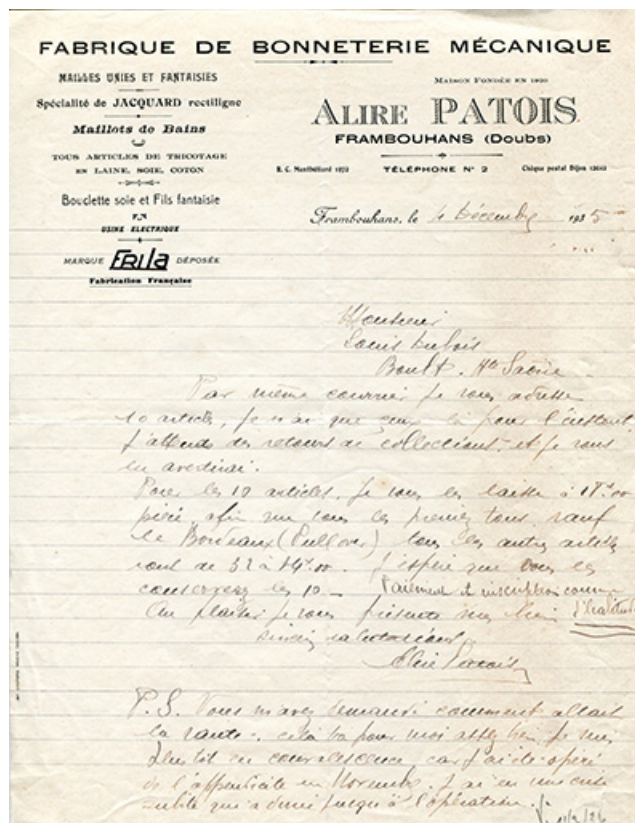 FABRIQUE DE BONNETERIE MÉCANIQUE
MAILLES UNIES ET FANTAISIES
Spécialité de JACQUARD rectiligne
Maillots de Bains
TOUS ARTICLES DE TRICOTAGE
EN LAINE, SOIE, COTON
Bouclette soie et Fils fantaisie
USINE ELECTRIQUE
MARQUE FRILA DÉPOSÉE
Fabrication Française
MAISON FONDÉE EN 1920
ALIRE PATOIS
FRAMBOUHANS (Doubs)
R. C. Montbéliard 1872 TÉLÉPHONE N° 2 Chèque postal Dijon
Frambouhans, le 4 Décembre 1935
Monsieur
Louis Dubois
Boult. Hte Saône
Par même courrier je vous adresse
10 articles, je n'ai que ceux là pour l'instant.
J'attends des retours de collections. et je vous
en avertirai.
Pour les 10 articles. Je vous les laisse à
pièce afin que vous les preniez tous. sauf
le Bordeaux (Pullover) tous les autres articles
sont de 32 à J'espère que vous les
conserverez les 10 - Paiement et inscription comme
Au plaisir je vous présente mes bien d'habitude
sincères salutations
Alire Patois
P.S. Vous m'avez demandé comment allait
la santé. cela va pour moi assez bien je suis
bientôt en convalescence car j'ai été opéré
de l'appendicite en Novembre. J'ai eu une crise
subite qui a duré jusqu'à l'opération.